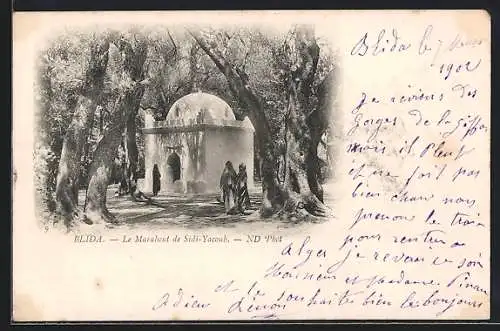 Blida le 7 Mars
1902
Je reviens des
Gorges de la Chiffa
mais il pleut
et ne fait pas
bien chaud nous
prenons le train
pour rentrer à
Alger je reverrai ce soir
Monsieur et Madame
et le souhaite bien le bonjour
Adieu
BLIDA. — Le Marabout de Sidi-Yacoub. — ND Phot